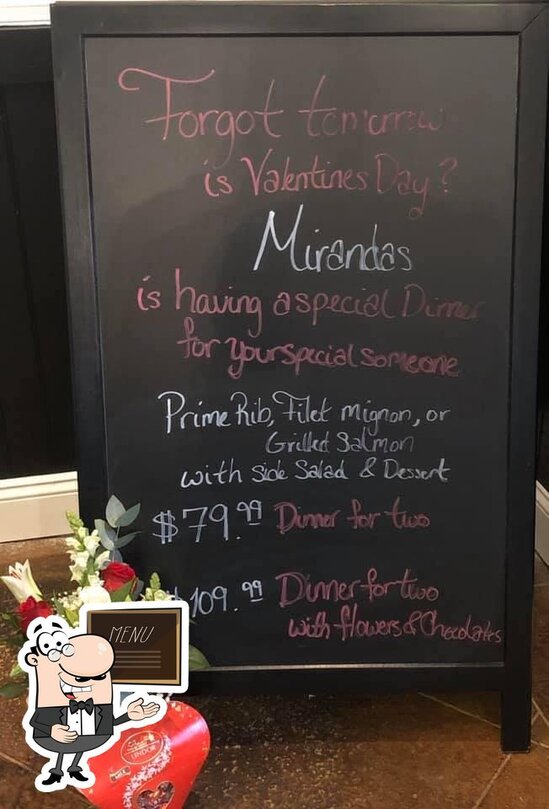 Forgot tomorrow
is Valentines Day?
Mirandas
is having a special Dinner
for your special someone
Prime Rib, Filet mignon, or
Grilled Salmon
with Side Salad & Dessert
$79.99 Dinner for two
$109.99 Dinner for two
with flowers & Chocolates
MENU
Lindt
LINDOR